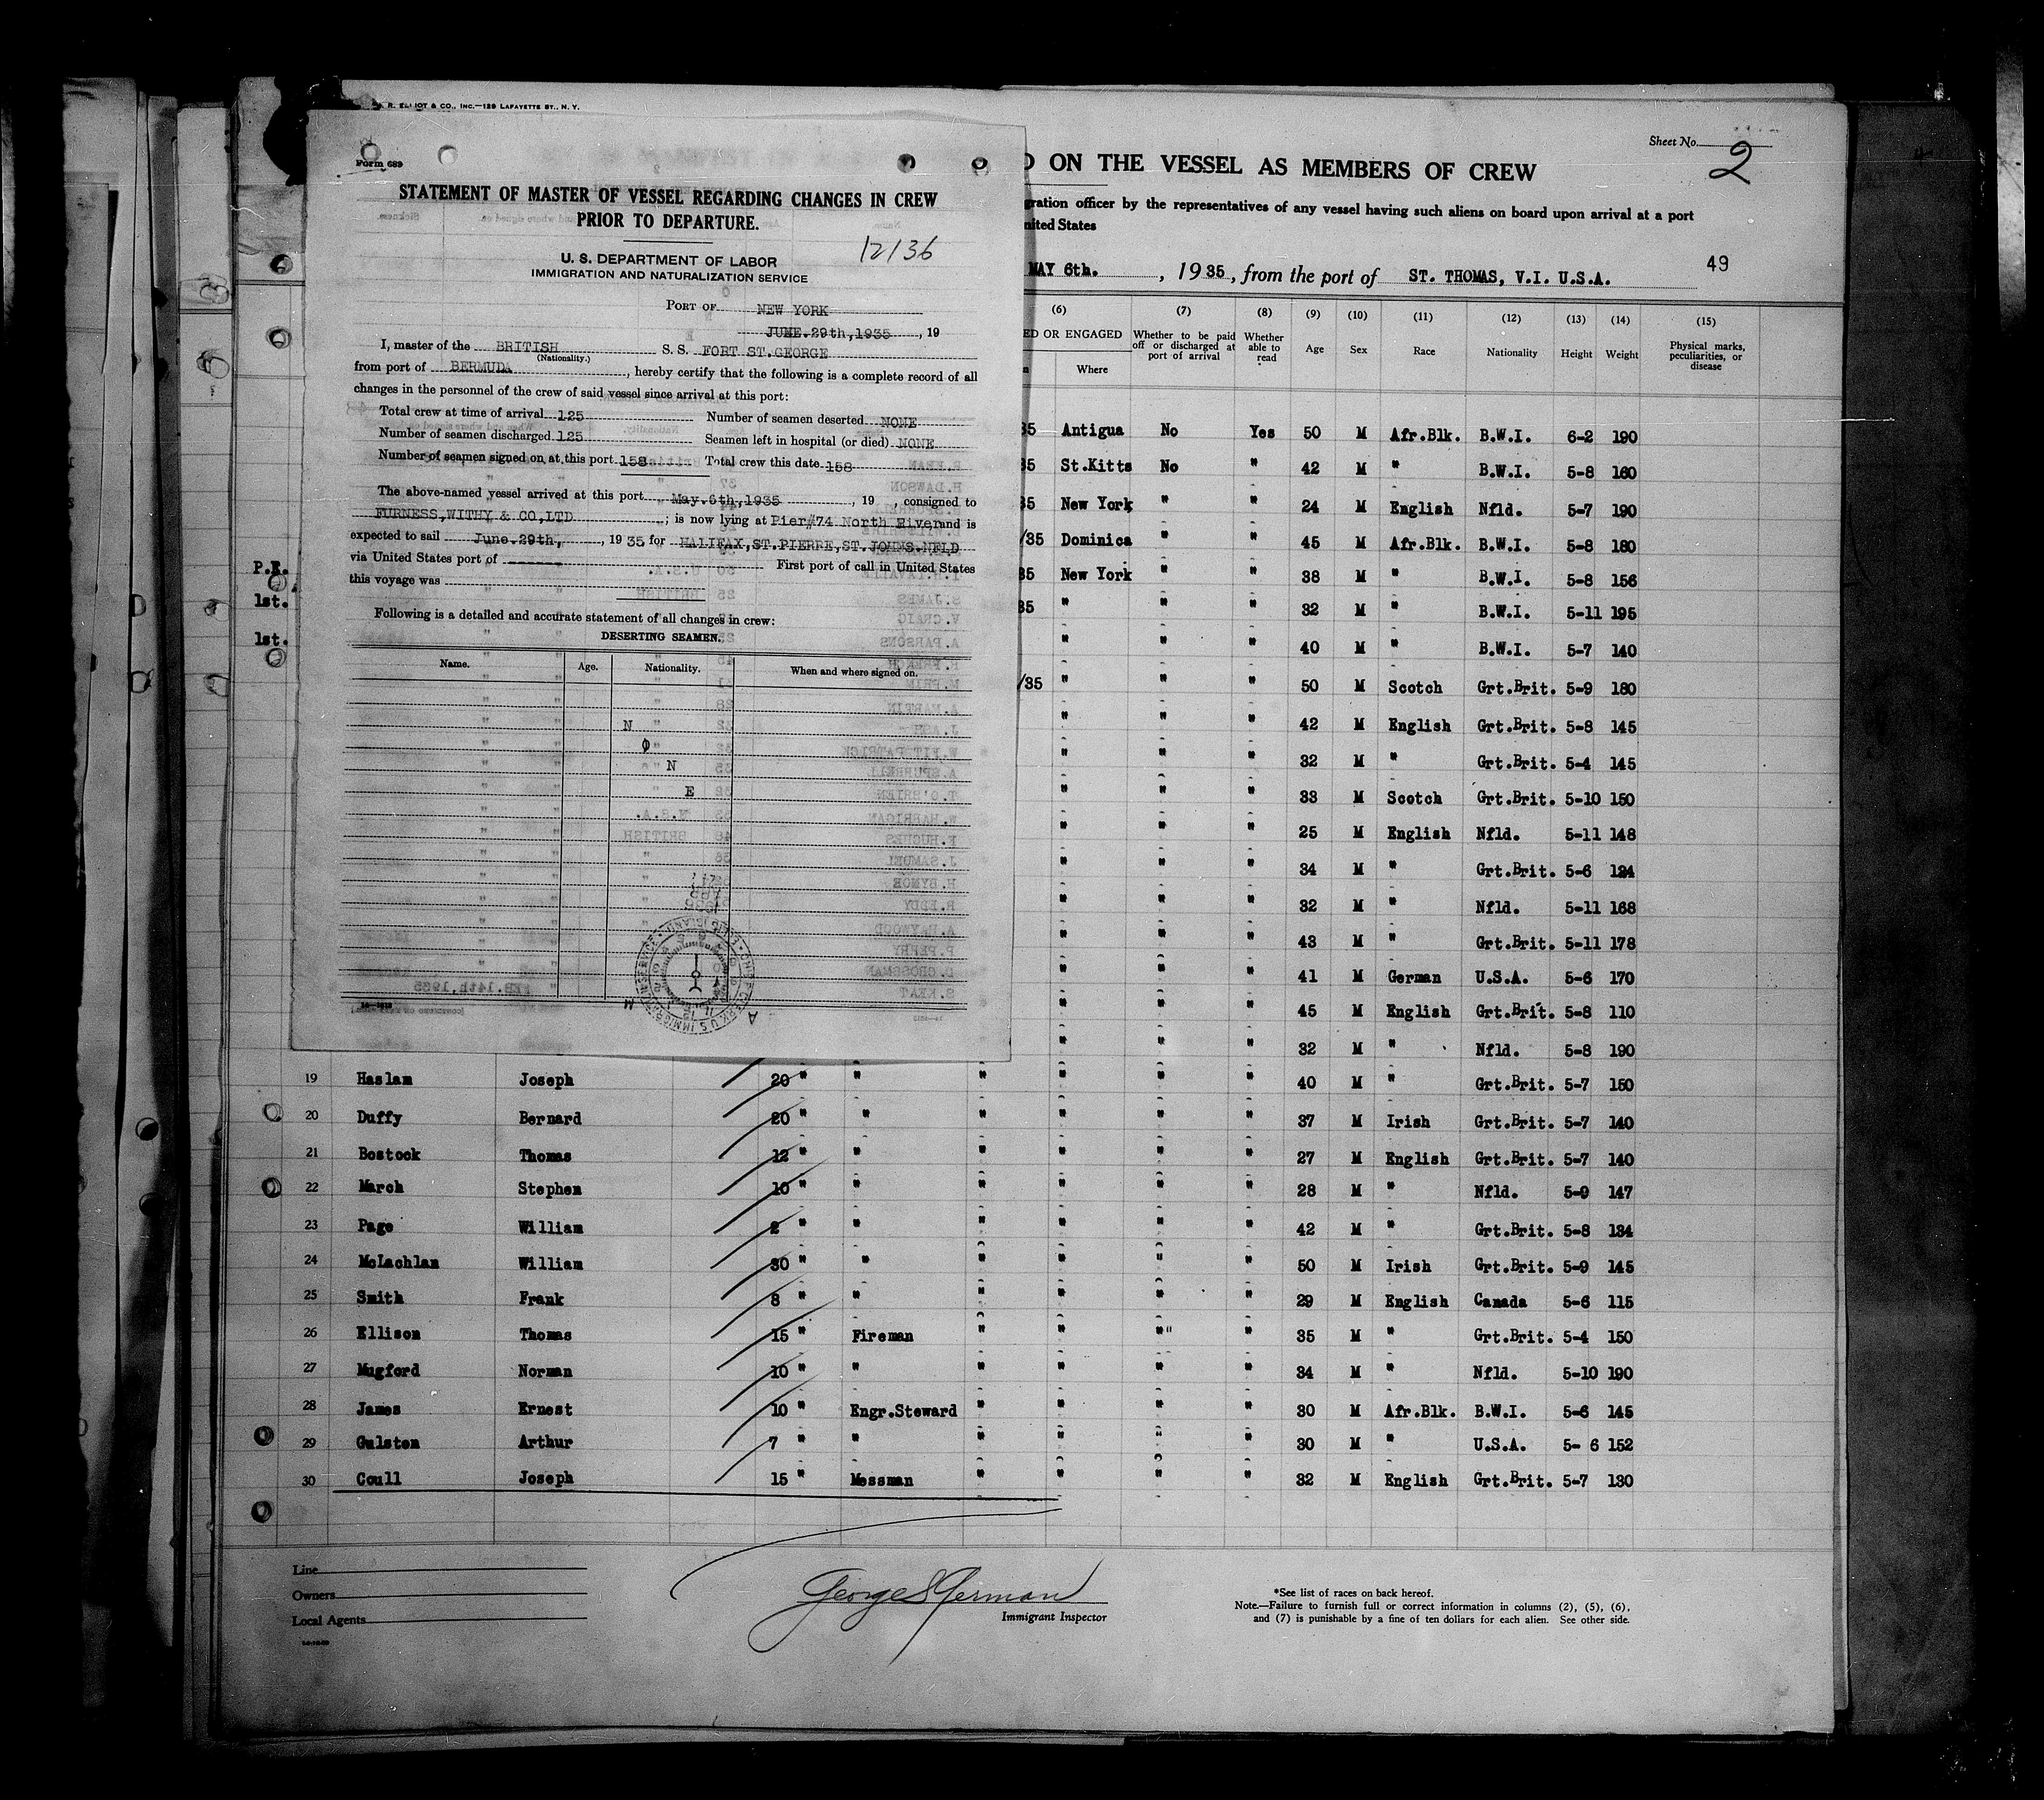 R. ELLIOT & CO., INC.—129 LAFAYETTE ST., N. Y.
Form 689
STATEMENT OF MASTER OF VESSEL REGARDING CHANGES IN CREW
PRIOR TO DEPARTURE.
12136
U. S. DEPARTMENT OF LABOR
IMMIGRATION AND NATURALIZATION SERVICE
PORT OF NEW YORK
JUNE.29th,1935, 19
I, master of the BRITISH S. S. FORT ST.GEORGE
(Nationality.)
from port of BERMUDA, hereby certify that the following is a complete record of all
changes in the personnel of the crew of said vessel since arrival at this port:
Total crew at time of arrival 125 Number of seamen deserted NONE
Number of seamen discharged 125 Seamen left in hospital (or died) NONE
Number of seamen signed on at this port 158 Total crew this date 158
The above-named vessel arrived at this port May.6th,1935, 19 , consigned to
FURNESS,WITHY & CO,LTD; is now lying at Pier#74 North River and is
expected to sail June.29th, , 1935 for HALIFAX,ST.PIERRE,ST.JOHNS.NFLD
via United States port of ------- First port of call in United States
this voyage was
Following is a detailed and accurate statement of all changes in crew:
DESERTING SEAMEN.
Name. Age. Nationality. When and where signed on.
N
O
N
E
Sheet No. 2
D ON THE VESSEL AS MEMBERS OF CREW
gration officer by the representatives of any vessel having such aliens on board upon arrival at a port
nited States
MAY 6th. , 1935, from the port of ST. THOMAS, V.I. U.S.A.
49
(6) (7) (8) (9) (10) (11) (12) (13) (14) (15)
ED OR ENGAGED Whether to be paid off or discharged at port of arrival Whether able to read Age Sex Race Nationality Height Weight Physical marks, peculiarities, or disease
Where
35 Antigua No Yes 50 M Afr.Blk. B.W.I. 6-2 190
35 St.Kitts No " 42 M " B.W.I. 5-8 160
35 New York " " 24 M English Nfld. 5-7 190
/35 Dominica " " 45 M Afr.Blk. B.W.I. 5-8 180
P.R. 35 New York " " 38 M " B.W.I. 5-8 156
1st. 35 " " " 32 M " B.W.I. 5-11 195
1st. " " " 40 M " B.W.I. 5-7 140
/35 " " " 50 M Scotch Grt.Brit. 5-9 180
" " " 42 M English Grt.Brit. 5-8 145
" " " 32 M " Grt.Brit. 5-4 145
" " " 33 M Scotch Grt.Brit. 5-10 150
" " " 25 M English Nfld. 5-11 148
" " " 34 M " Grt.Brit. 5-6 124
" " " 32 M " Nfld. 5-11 168
" " " 43 M " Grt.Brit. 5-11 178
" " " 41 M German U.S.A. 5-6 170
" " " 45 M English Grt.Brit. 5-8 110
" " " 32 M " Nfld. 5-8 190
19 Haslam Joseph 20 " " " " " " 40 M " Grt.Brit. 5-7 150
20 Duffy Bernard 20 " " " " " " 37 M Irish Grt.Brit. 5-7 140
21 Bostock Thomas 12 " " " " " " 27 M English Grt.Brit. 5-7 140
22 March Stephen 10 " " " " " " 28 M " Nfld. 5-9 147
23 Page William 2 " " " " " " 42 M " Grt.Brit. 5-8 134
24 McLachlan William 30 " " " " " " 50 M Irish Grt.Brit. 5-9 145
25 Smith Frank 8 " " " " " " 29 M English Canada 5-6 115
26 Ellison Thomas 15 " Fireman " " " " 35 M " Grt.Brit. 5-4 150
27 Mugford Norman 10 " " " " " " 34 M " Nfld. 5-10 190
28 James Ernest 10 " Engr.Steward " " " " 30 M Afr.Blk. B.W.I. 5-6 145
29 Gulston Arthur 7 " " " " " " 30 M " U.S.A. 5- 6 152
30 Coull Joseph 15 " Messman " " " " 32 M English Grt.Brit. 5-7 130
Line
Owners
Local Agents
George S Herman
Immigrant Inspector
*See list of races on back hereof.
Note.—Failure to furnish full or correct information in columns (2), (5), (6),
and (7) is punishable by a fine of ten dollars for each alien. See other side.